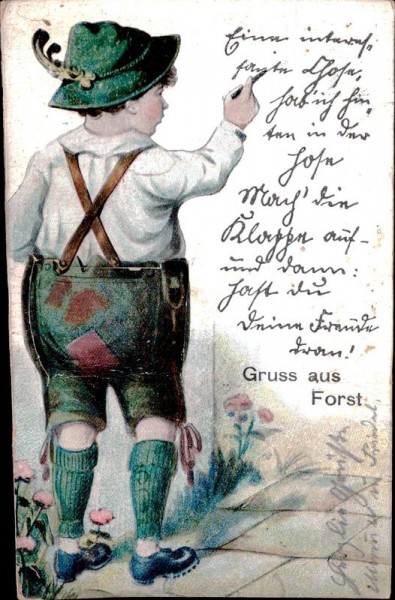 Eine interes-
sante Chose,
hab ich hin-
ten in der
Hose
Mach' die
Klappe auf-
und dann:
hast du
deine Freude
dran!
Gruss aus
Forst